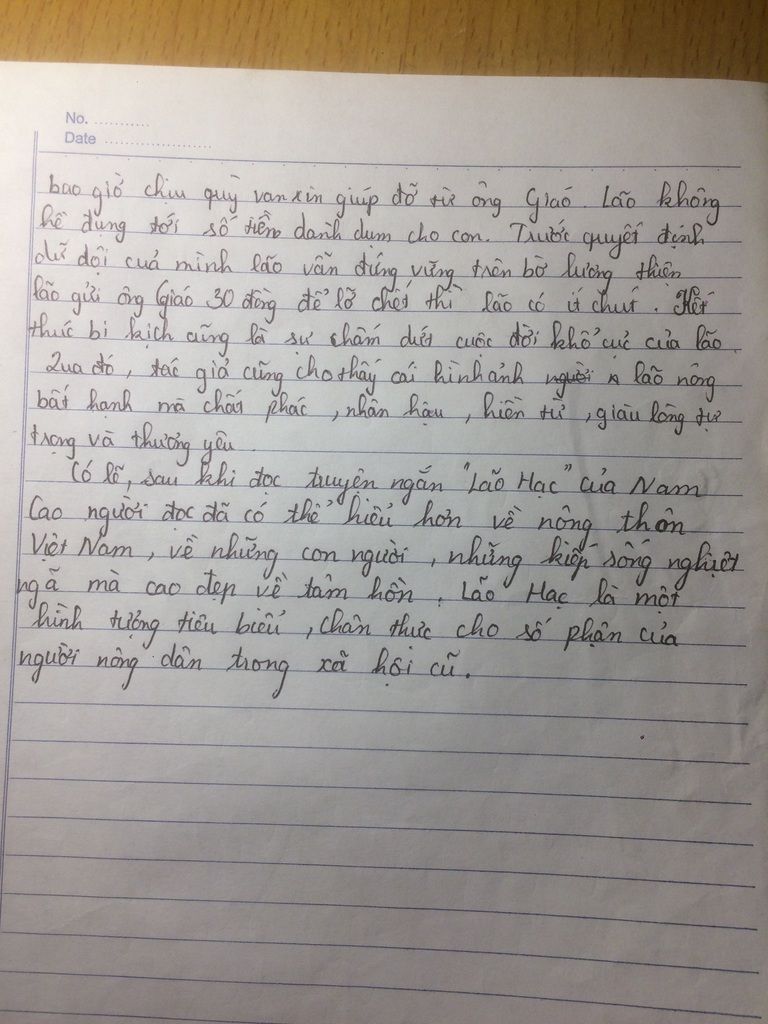 No. ...........
Date .....................
bao giờ chịu quỳ van xin giúp đỡ từ ông Giáo. Lão không
hề đụng tới số tiền dành dụm cho con. Trước quyết định
dữ dội của mình lão vẫn đứng vững trên bờ lương thiện
lão gửi ông Giáo 30 đồng để lỡ chết thì lão có ít chút. Kết
thúc bi kịch cũng là sự chấm dứt cuộc đời khổ cực của lão.
Qua đó, tác giả cũng cho thấy cái hình ảnh người lão nông
bất hạnh mà chất phác, nhân hậu, hiền từ, giàu lòng tự
trọng và thương yêu.
Có lẽ, sau khi đọc truyện ngắn "Lão Hạc" của Nam
Cao người đọc đã có thể hiểu hơn về nông thôn
Việt Nam, về những con người, những kiếp sống nghiệt
ngã mà cao đẹp về tâm hồn. Lão Hạc là một
hình tượng tiêu biểu, chân thực cho số phận của
người nông dân trong xã hội cũ.